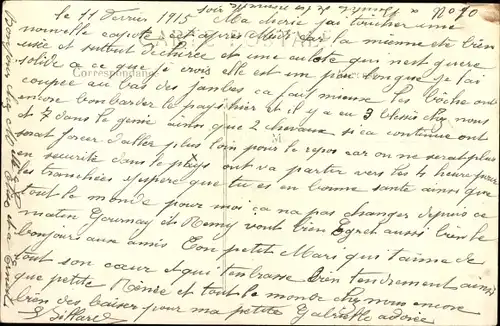 le 11 Fevrier 1915 Ma cherie j'ai toucher une No 70
nouvelle capote cet après Midi car la mienne été bien
usée et surtout dechirée et une culote qui n'est guere
solide a ce que je crois elle est un peu longue je l'ai
Correspondance
coupée au bas des jambes ca fait mieux les Boche ont
encore bombarder le pays hier et il y a eu 3 blessés chez nous
et 7 dans le genie ainsi que 2 chevaux si ca continue ont
serat forcer d'aller plus loin pour le repos car on ne serat plus
en securité dans le pays ont va partir vers les 4 heure pour
les tranchées j'espere que tu es en bonne santé ainsi que
tout le monde pour moi ca na pas changer depuis ce
matin Gournay et Remy vont bien Egret aussi bien le
bonjours aux amis Ton petit Mari qui t'aime de
tout son cœur et qui t'embrasse bien tendrement ainsi
que petite Renée et tout le monde chez nous encore
bien des baiser pour ma petite Gabrielle adorée
Billard
bonjour chez